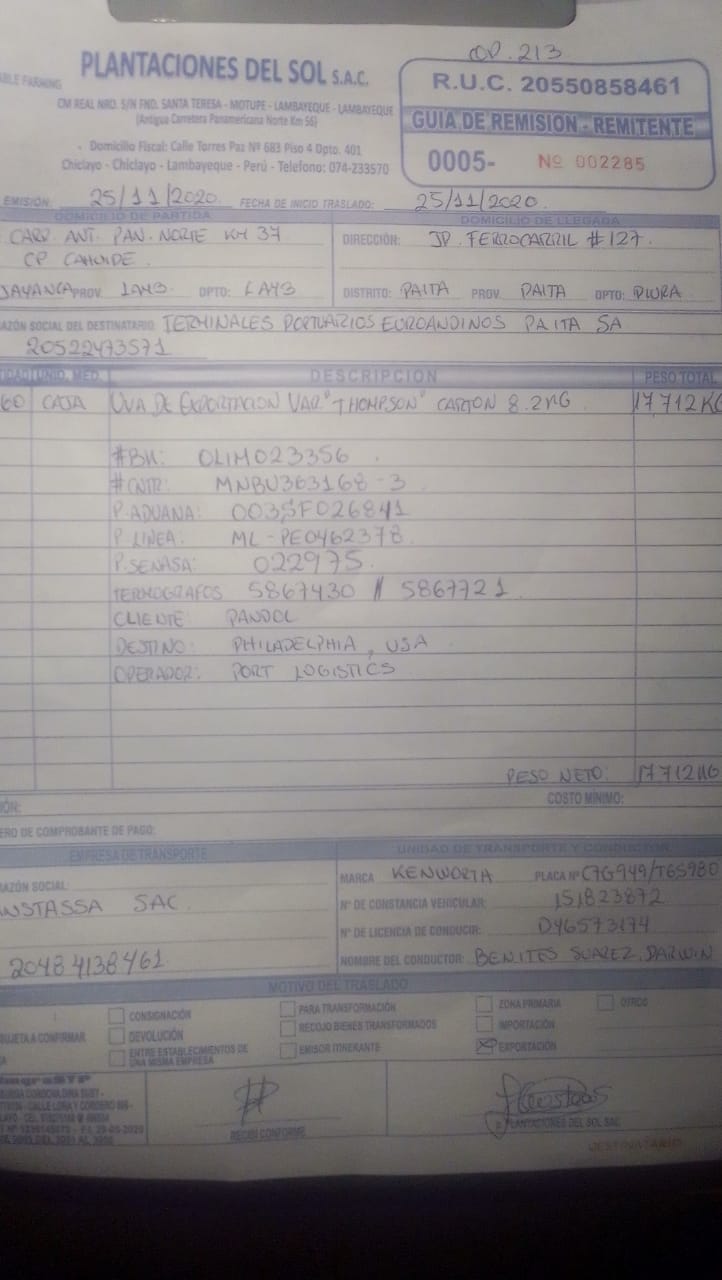 OP. 213
ABLE FARMING PLANTACIONES DEL SOL S.A.C.
CM REAL NRO. S/N FND. SANTA TERESA - MOTUPE - LAMBAYEQUE - LAMBAYEQUE
(Antigua Carretera Panamericana Norte Km 56)
Domicilio Fiscal: Calle Torres Paz Nº 683 Piso 4 Dpto. 401
Chiclayo - Chiclayo - Lambayeque - Perú - Telefono: 074-233570
R.U.C. 20550858461
GUIA DE REMISION - REMITENTE
0005- Nº 002285
EMISIÓN: 25/11/2020 FECHA DE INICIO TRASLADO: 25/11/2020.
DOMICILIO DE PARTIDA
CARR. ANT. PAN. NORTE KM 37
CP CAHUIDE
JAYANCA PROV. LAMB. DPTO: LAMB
DOMICILIO DE LLEGADA
DIRECCIÓN: JR. FERROCARRIL #127.
DISTRITO: PAITA PROV. PAITA DPTO: PIURA
AZÓN SOCIAL DEL DESTINATARIO: TERMINALES PORTUARIOS EUROANDINOS PAITA SA
20522473571
UNID. MED. DESCRIPCION PESO TOTAL
60 CAJA UVA DE EXPORTACION VAR. "THOMPSON" CARTON 8.2KG 17 712KG
#BK: OLIM023356
#CNTR: MNBU363168-3
P.ADUANA: 003SF026841
P.LINEA: ML-PE0462378
P.SENASA: 022975
TERMOGRAFOS 5867430 // 5867721
CLIENTE: PANDOL
DESTINO: PHILADELPHIA, USA
OPERADOR: PORT LOGISTICS
PESO NETO: 17712KG
IÓN: COSTO MÍNIMO:
ERO DE COMPROBANTE DE PAGO:
EMPRESA DE TRANSPORTE
AZÓN SOCIAL
NSTASSA SAC
20484138461
UNIDAD DE TRANSPORTE Y CONDUCTOR
MARCA KENWORTH PLACA Nº C7G949/T6S980
Nº DE CONSTANCIA VEHICULAR: 151823872
Nº DE LICENCIA DE CONDUCIR: D46573174
NOMBRE DEL CONDUCTOR: BENITES SUAREZ, DARWIN
MOTIVO DEL TRASLADO
CONSIGNACIÓN PARA TRANSFORMACIÓN ZONA PRIMARIA OTROS
SUJETA A CONFIRMAR DEVOLUCIÓN RECOJO BIENES TRANSFORMADOS IMPORTACIÓN
ENTRE ESTABLECIMIENTOS DE UNA MISMA EMPRESA EMISOR ITINERANTE EXPORTACIÓN
RECIBI CONFORME
PLANTACIONES DEL SOL SAC
DESTINATARIO